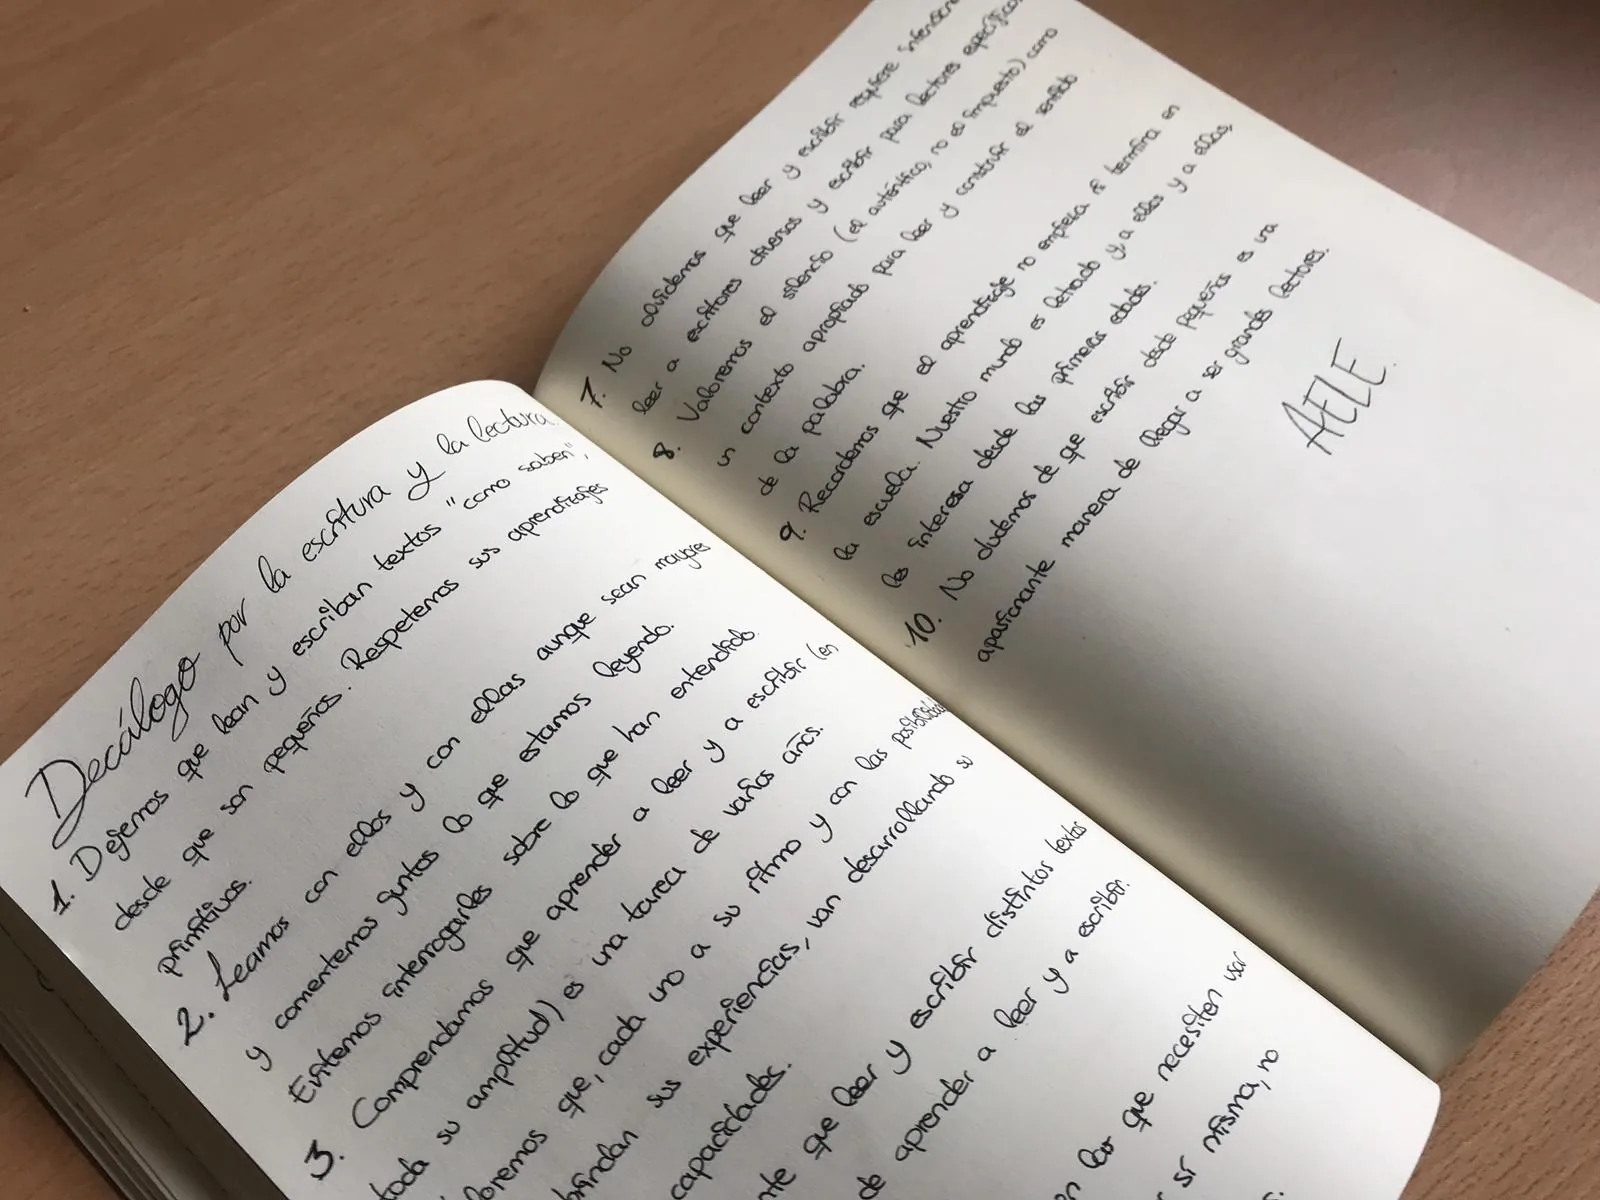 Decálogo por la escritura y la lectura.
1. Dejemos que lean y escriban textos "como saben",
desde que son pequeños. Respetemos sus aprendizajes
primitivos.
2. Leamos con ellos y con ellas aunque sean mayores
y comentemos juntos lo que estamos leyendo.
Evitemos interrogarles sobre lo que han entendido.
3. Comprendamos que aprender a leer y a escribir (en
toda su amplitud) es una tarea de varios años.
que, cada uno a su ritmo y con las
sus experiencias, van desarrollando su
capacidades.
que leer y escribir distintos textos
de aprender a leer y a escribir.
que necesiten usar
sí misma, no
7. No olvidemos que leer y escribir requiere
leer a escritores diversos y escribir para lectores específicos.
8. Valoremos el silencio (el auténtico, no el impuesto) como
un contexto apropiado para leer y construir el sentido
de la palabra.
9. Recordemos que el aprendizaje no empieza ni termina en
la escuela. Nuestro mundo es letrado y a ellos y a ellas,
les interesa desde las primeras edades.
10. No dudemos de que escribir desde pequeños es una
apasionante manera de llegar a ser grandes lectores.
AELE.